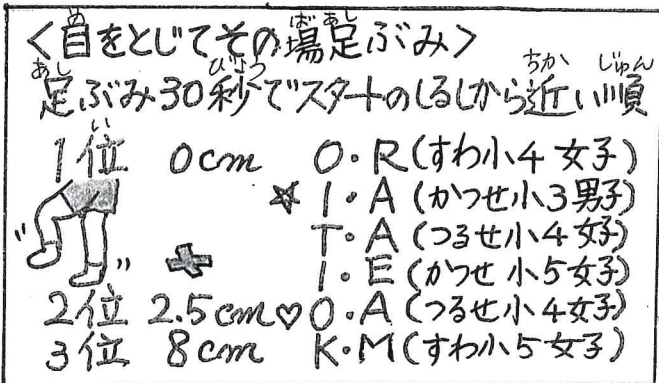 <目をとじてその場足ぶみ>
足ぶみ30秒でスタートのしるしから近い順
1位 0cm O・R(すわ小4女子)
☆ I・A(かつせ小3男子)
T・A(つるせ小4女子)
I・E(かつせ小5女子)
2位 2.5cm♡O・A(つるせ小4女子)
3位 8cm K・M(すわ小5女子)